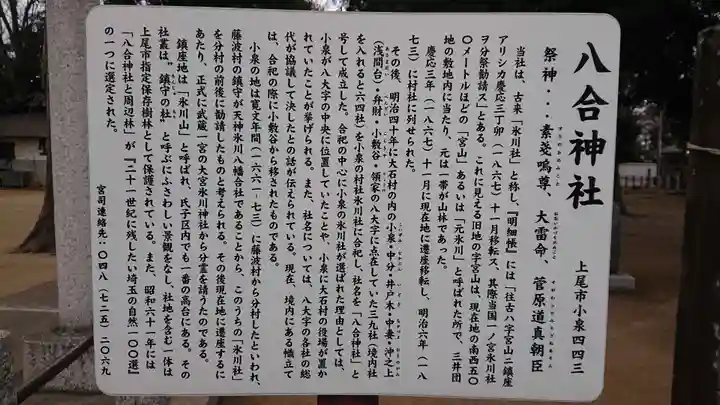 八合神社
上尾市小泉四四三
祭神・・・素戔嗚尊、大雷命、菅原道真朝臣
当社は、古来「氷川社」と称し、『明細帳』には「往古ハ字宮山ニ鎮座
アリシカ慶応三丁卯（一八六七）十一月移転ス、其際当国一ノ宮氷川社
ヲ分祭勧請ス」とある。これに見える旧地の字宮山は、現在地の南西五〇
〇メートルほどの「宮山」あるいは「元氷川」と呼ばれた所で、三井団
地の敷地内に当たり、元は一帯が山林であった。
慶応三年（一八六七）十一月に現在地に遷座移転し、明治六年（一八
七三）に村社に列せられた。
その後、明治四十年に大石村の内の小泉・中分・井戸木・中妻・沖之上
（浅間台）・弁財・小敷谷・領家の八大字に点在していた三九社（境内社
を入れると六四社）を小泉の村社氷川社に合祀し、社名を「八合神社」と
号して成立した。合祀の中心に小泉の氷川社が選ばれた理由としては、
小泉が八大字の中央に位置していたことや、小泉に大石村の役場が置か
れていたことが挙げられる。また、社名については、八大字の各社の総
代が協議して決したとの話が伝えられている。現在、境内にある幟立て
は、合祀の際に小敷谷から移されたものである。
小泉の地は寛文年間（一六六一-七三）に藤波村から分村したといわれ、
藤波村の鎮守が天神氷川八幡合社であることから、このうちの「氷川社」
を分村の前後に勧請したものと考えられる。その後現在地に遷座するに
あたり、正式に武蔵一宮の大宮氷川神社から分霊を請うたのである。
鎮座地は「氷川山」と呼ばれ、氏子区内でも一番の高台にある。その
社叢は、"鎮守の杜"と呼ぶにふさわしい景観をなし、社地を含む一体は
上尾市指定保存樹林として保護されている。また、昭和六十一年には
「八合神社と周辺林」が『二十一世紀に残したい埼玉の自然一〇〇選』
の一つに選定された。
宮司連絡先：〇四八（七二五）二〇六九